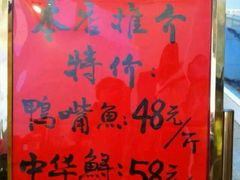 本店推介
特价:
鸭嘴魚:48元/斤
中华鲟:58元